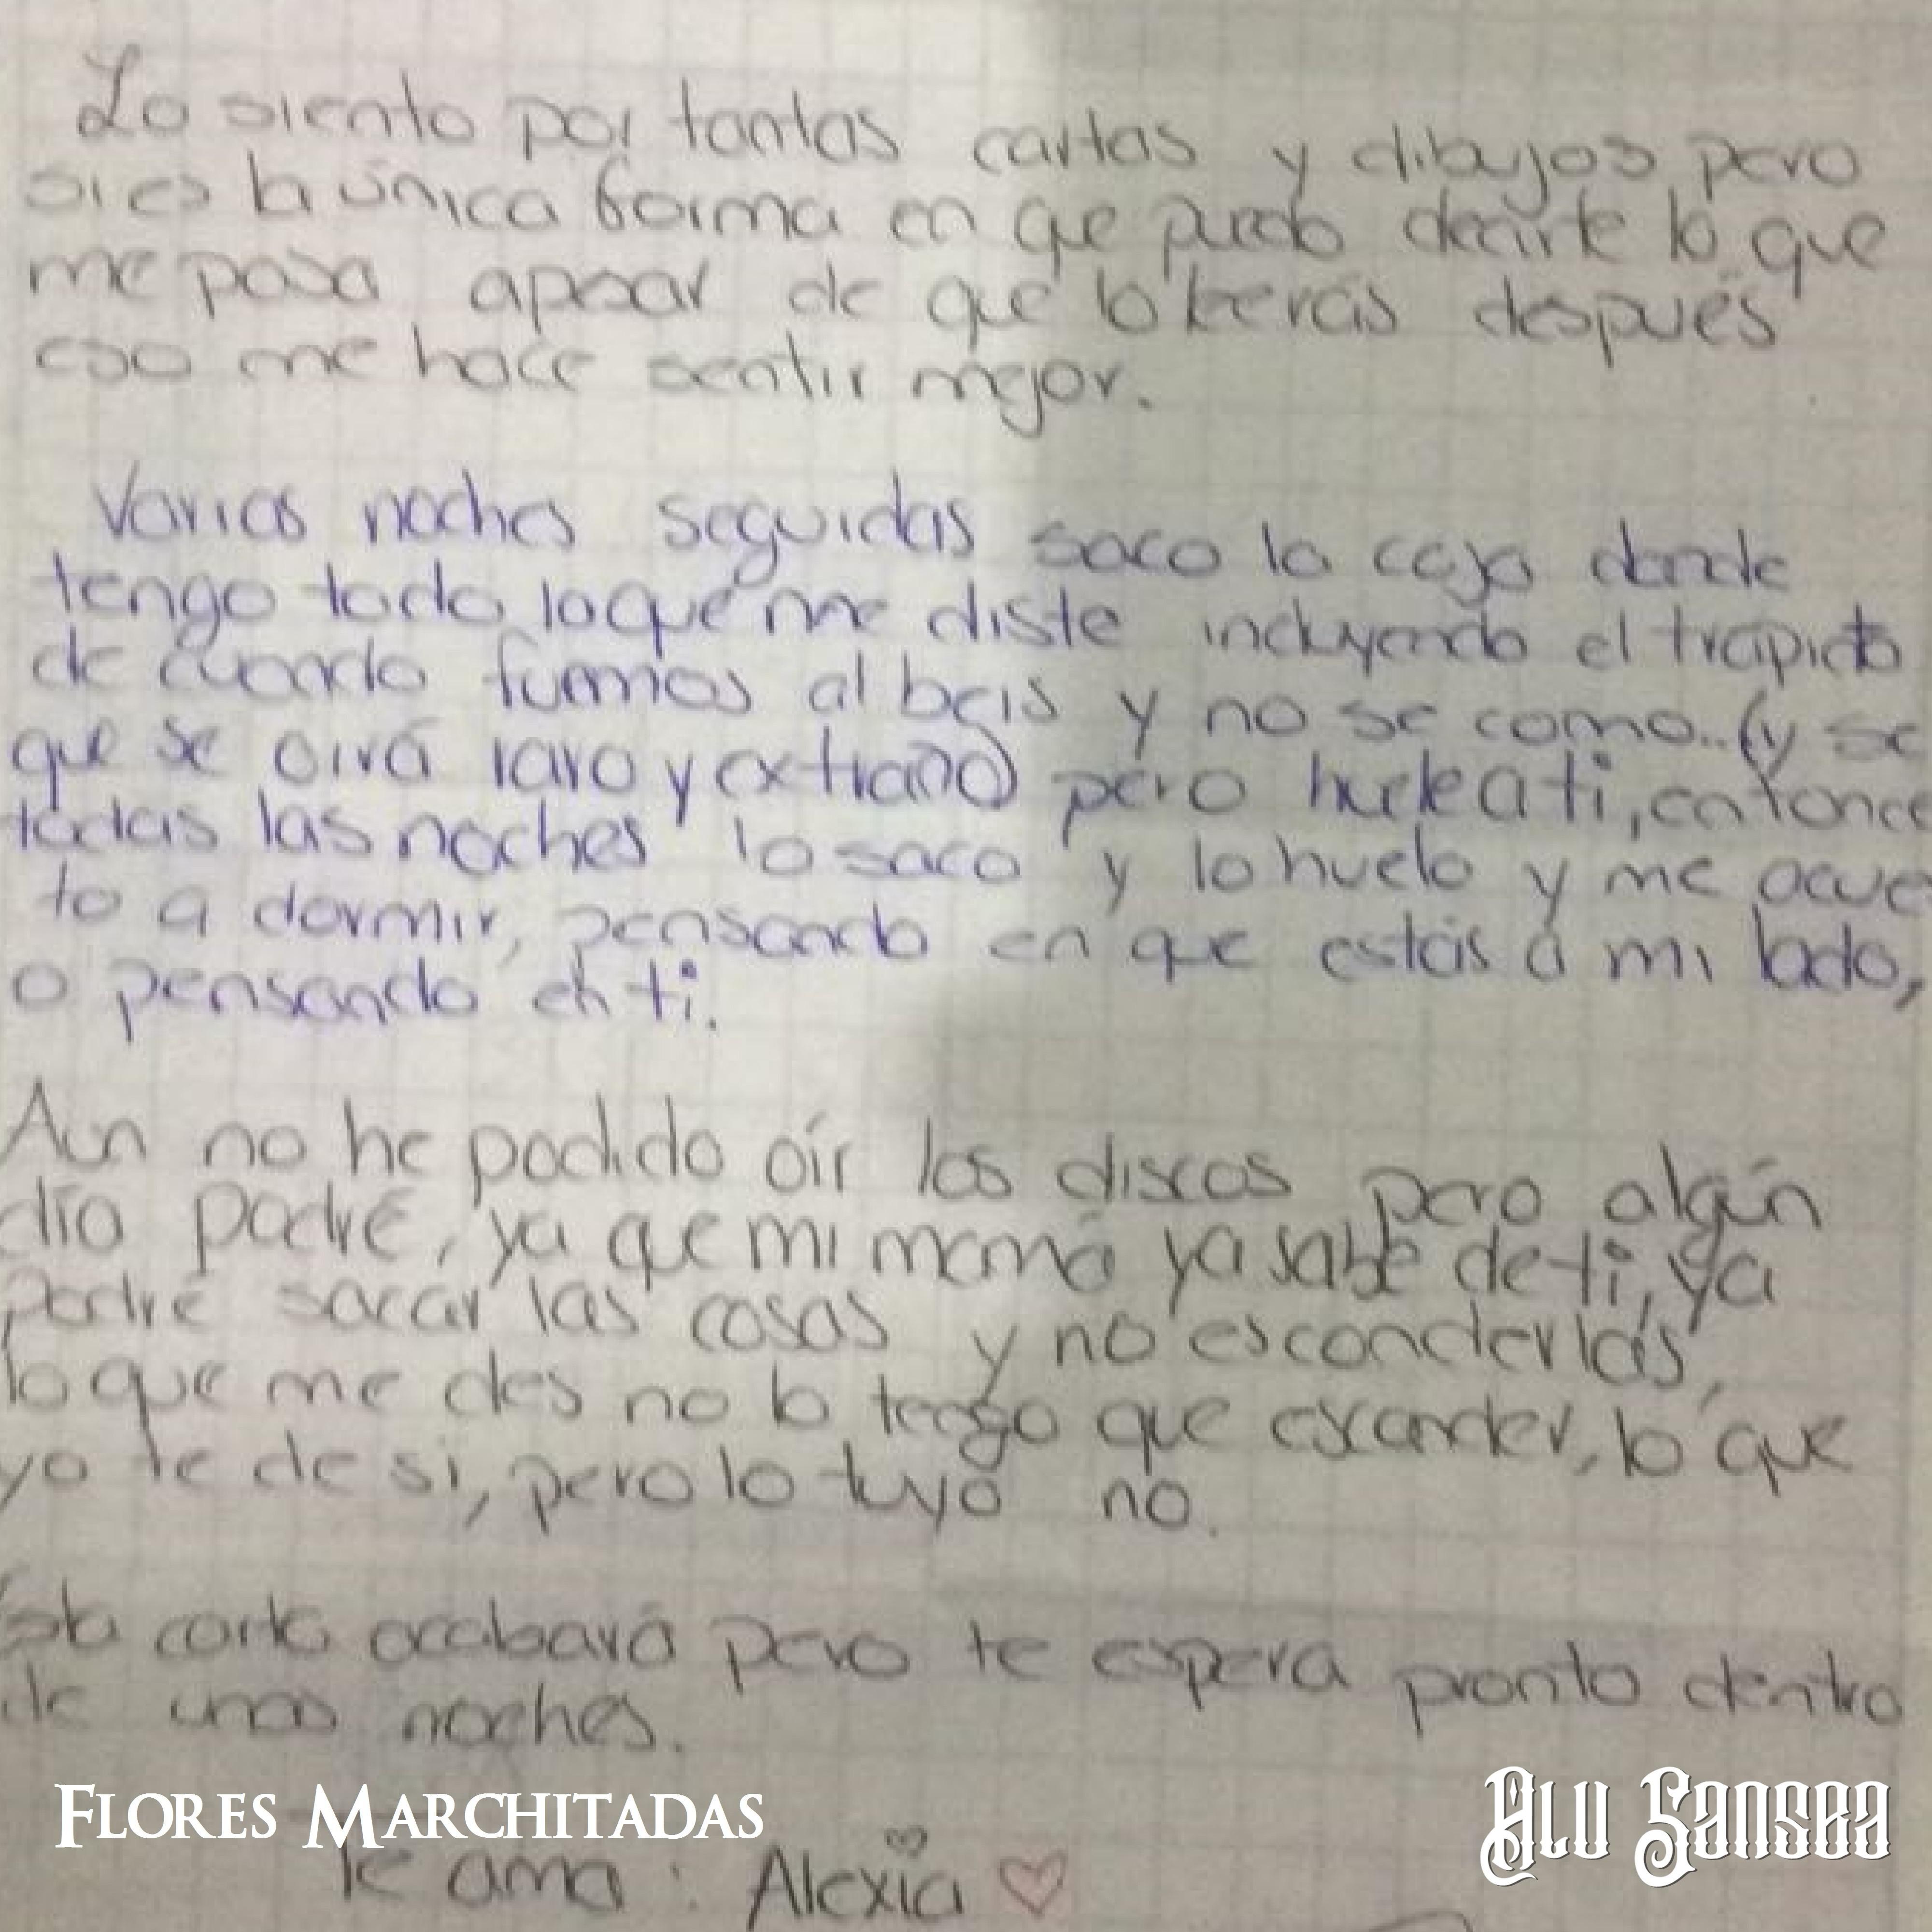 Lo siento por tantas cartas y dibujos pero
si es la única forma en que puedo decirte lo que
me pasa apesar de que lo leerás después
eso me hace sentir mejor.
Varias noches seguidas saco la caja donde
tengo todo lo que me diste incluyendo el trapito
de cuando fuimos al beis y no se como..(y se
que se oirá raro y extraño) pero huele a ti, entonce
todas las noches lo saco y lo huelo y me acue
to a dormir, pensando en que estás a mi lado,
o pensando en ti.
Aun no he podido oír los discos pero algún
día podré, ya que mi mamá ya sabe de ti, ya
podré sacar las cosas y no esconderlas,
lo que me des no lo tengo que esconder, lo que
yo te de si, pero lo tuyo no.
Esta carta acabará pero te espera pronto dentro
de unas noches.
FLORES MARCHITADAS
Alu Sansea
Te ama: Alexia